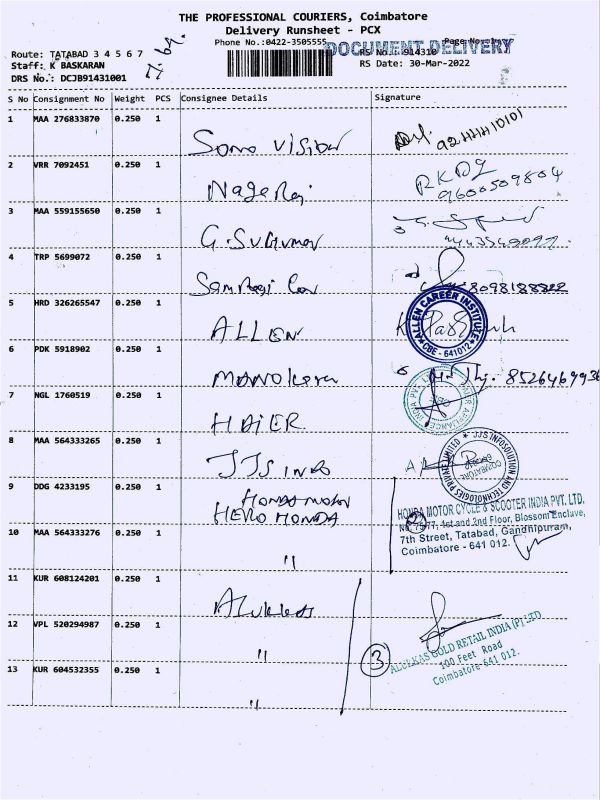 THE PROFESSIONAL COURIERS, Coimbatore
Delivery Runsheet - PCX
Phone No.:0422-3505555
DOCUMENT DELIVERY
Route: TATABAD 3 4 5 6 7
RS No.: 914310
Staff: K BASKARAN
RS Date: 30-Mar-2022
DRS No.: DCJB91431001
S No Consignment No Weight PCS Consignee Details Signature
1 MAA 276833870 0.250 1
2 VRR 7092451 0.250 1 Nageraj 9600509804
3 MAA 559155650 0.250 1 G.Sugumar
4 TRP 5699072 0.250 1 8098188822
5 HRD 326265547 0.250 1 ALLEN
ALLEN CAREER INSTITUTE
CBE - 641012
6 PDK 5918902 0.250 1 8526469936
7 NGL 1760519 0.250 1 HAIER
8 MAA 564333265 0.250 1 JJS INFO
JJS INFOSOLUTION AND TECHNOLOGIES PRIVATE LIMITED
COIMBATORE
9 DDG 4233195 0.250 1 HONDA MOTOR
HERO HONDA
HONDA MOTOR CYCLE & SCOOTER INDIA PVT. LTD.
1st and 2nd Floor, Blossom Enclave,
7th Street, Tatabad, Gandhipuram,
Coimbatore - 641 012.
10 MAA 564333276 0.250 1 "
11 KUR 608124201 0.250 1 Alukkas
12 VPL 520294987 0.250 1 "
3
ALUKKAS GOLD RETAIL INDIA (P) LTD
100 Feet Road
Coimbatore 641 012.
13 KUR 604532355 0.250 1 "